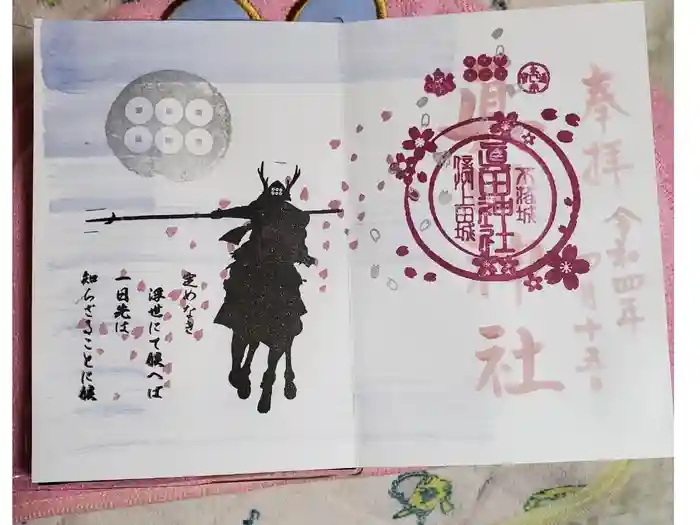 奉拝
令和四年
四月十五日
眞田神社
不落城
信州上田城
定めなき
浮世にて候へば
一日先は
知らざることに候